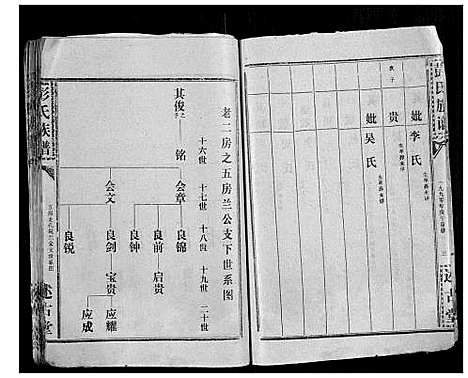 彭氏族谱
妣李氏
贵
妣吴氏
老二房之五房兰公支下世系图
十六世 十七世 十八世 十九世 二十世
其俊之子 铭
会章
会文
良锦
良前 启贵
良钟
良剑 宝贵 应耀
应成
良锐
彭氏族谱
述古堂
述古堂